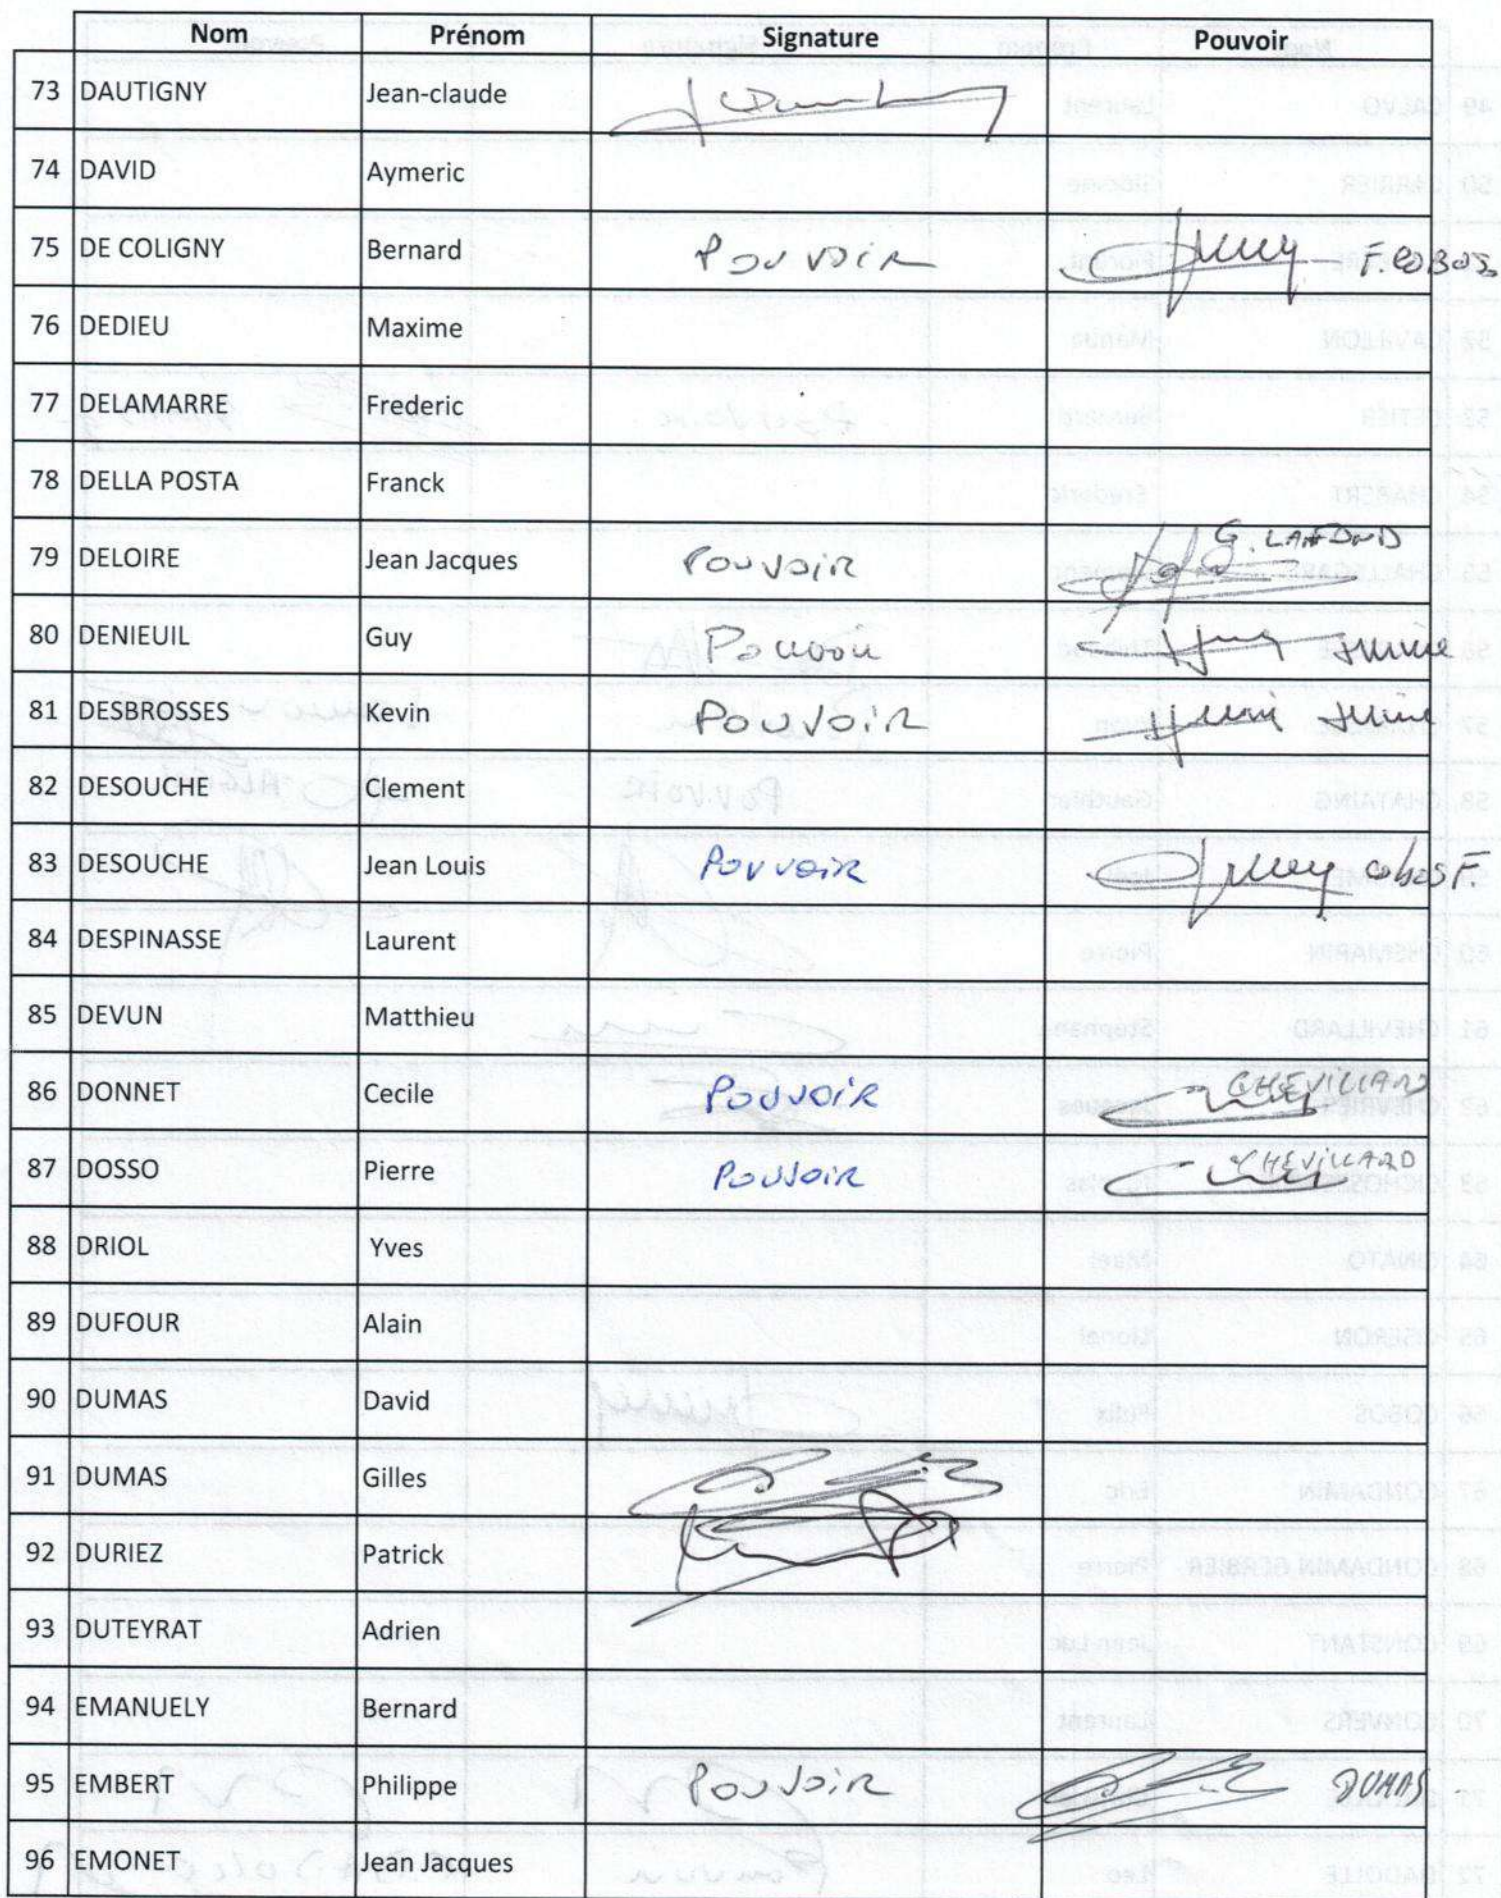 Nom Prénom Signature Pouvoir
73 DAUTIGNY Jean-claude
74 DAVID Aymeric
75 DE COLIGNY Bernard Pouvoir F. COBOS
76 DEDIEU Maxime
77 DELAMARRE Frederic
78 DELLA POSTA Franck
79 DELOIRE Jean Jacques Pouvoir G. LAFOND
80 DENIEUIL Guy Pouvoir
81 DESBROSSES Kevin Pouvoir
82 DESOUCHE Clement
83 DESOUCHE Jean Louis Pouvoir cobos F.
84 DESPINASSE Laurent
85 DEVUN Matthieu
86 DONNET Cecile Pouvoir CHEVILLARD
87 DOSSO Pierre Pouvoir CHEVILLARD
88 DRIOL Yves
89 DUFOUR Alain
90 DUMAS David
91 DUMAS Gilles
92 DURIEZ Patrick
93 DUTEYRAT Adrien
94 EMANUELY Bernard
95 EMBERT Philippe Pouvoir DUMAS
96 EMONET Jean Jacques